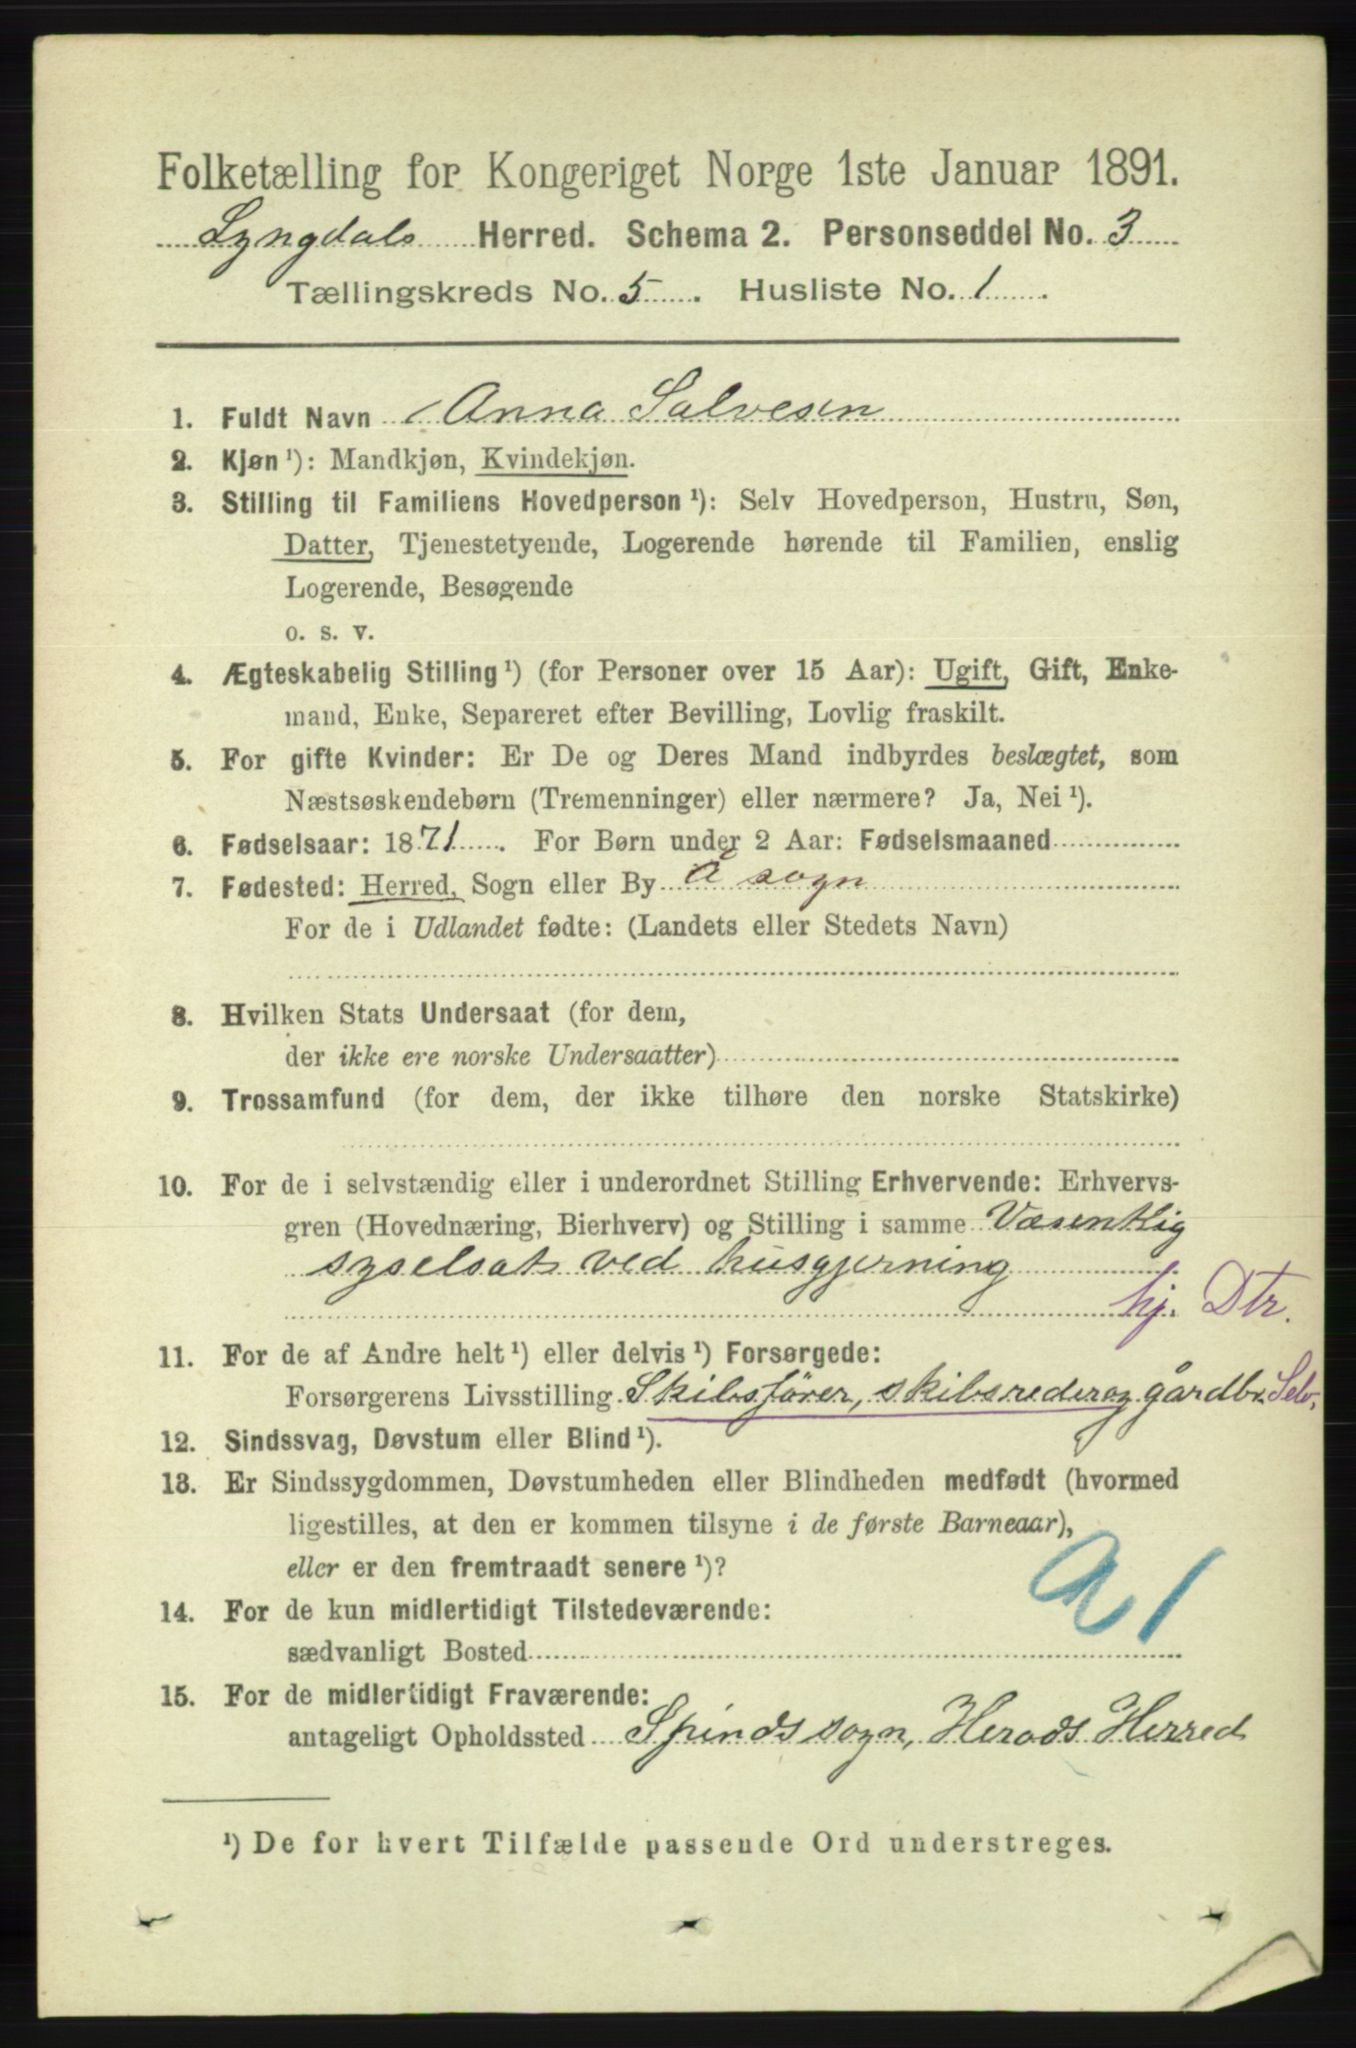 Folketælling for Kongeriget Norge 1ste Januar 1891.
Lyngdals Herred. Schema 2. Personseddel No. 3
Tællingskreds No. 5. Husliste No. 1.
1. Fuldt Navn Anna Salvesen
2. Kjøn ¹): Mandkjøn, Kvindekjøn.
3. Stilling til Familiens Hovedperson ¹): Selv Hovedperson, Hustru, Søn,
Datter, Tjenestetyende, Logerende hørende til Familien, enslig
Logerende, Besøgende
o. s. v.
4. Ægteskabelig Stilling ¹) (for Personer over 15 Aar): Ugift, Gift, Enke-
mand, Enke, Separeret efter Bevilling, Lovlig fraskilt.
5. For gifte Kvinder: Er De og Deres Mand indbyrdes beslægtet, som
Næstsøskendebørn (Tremenninger) eller nærmere? Ja, Nei ¹).
6. Fødselsaar: 1871. For Børn under 2 Aar: Fødselsmaaned
7. Fødested: Herred, Sogn eller By Å sogn
For de i Udlandet fødte: (Landets eller Stedets Navn)
8. Hvilken Stats Undersaat (for dem,
der ikke ere norske Undersaatter)
9. Trossamfund (for dem, der ikke tilhøre den norske Statskirke)
10. For de i selvstændig eller i underordnet Stilling Erhvervende: Erhvervs-
gren (Hovednæring, Bierhverv) og Stilling i samme Væsentlig
syselsat ved husgjerning
hj. Dtr.
11. For de af Andre helt ¹) eller delvis ¹) Forsørgede:
Forsørgerens Livsstilling Skibsfører, skibsreder og gårdbr. Selv.
12. Sindssvag, Døvstum eller Blind ¹).
13. Er Sindssygdommen, Døvstumheden eller Blindheden medfødt (hvormed
ligestilles, at den er kommen tilsyne i de første Barneaar),
eller er den fremtraadt senere ¹)?
a 1
14. For de kun midlertidigt Tilstedeværende:
sædvanligt Bosted
15. For de midlertidigt Fraværende:
antageligt Opholdssted Spinds sogn, Herads Herred
¹) De for hvert Tilfælde passende Ord understreges.